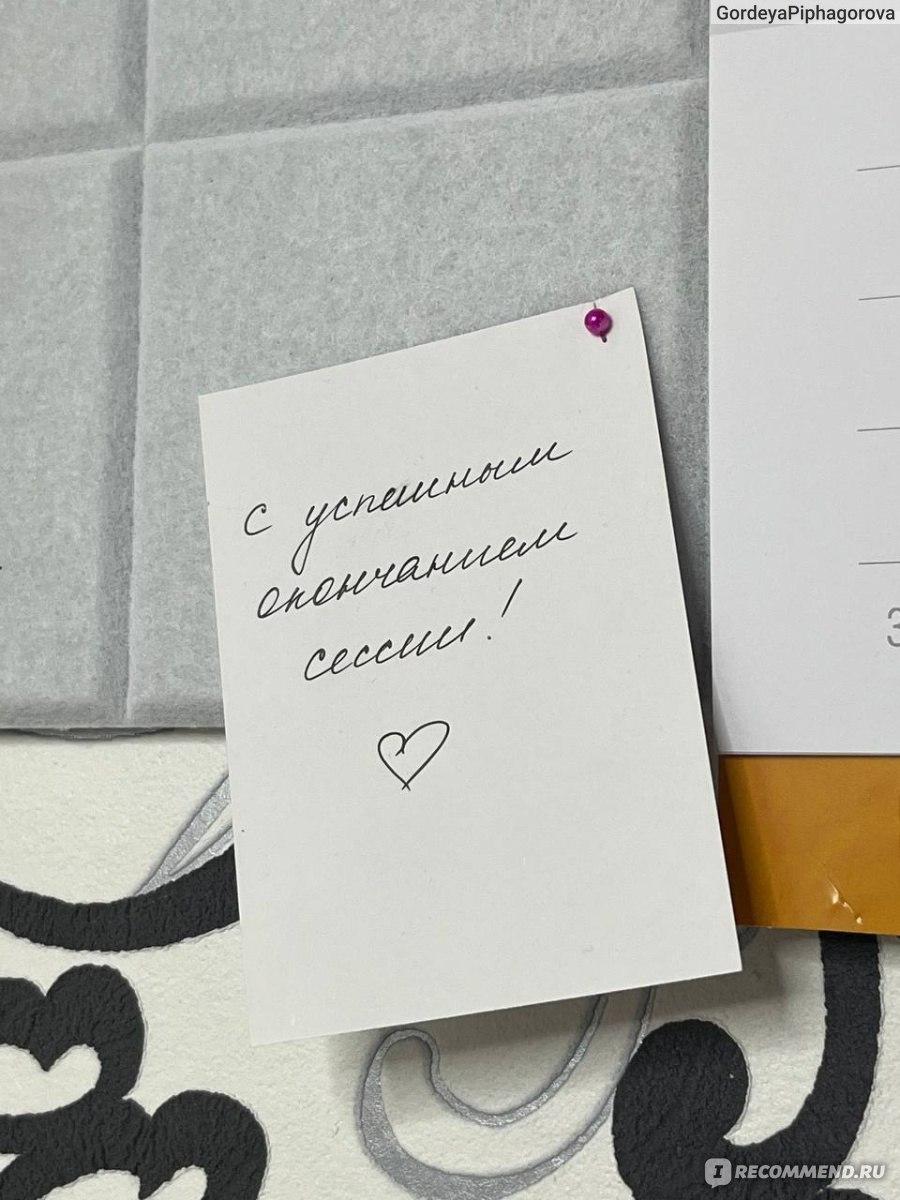 GordeyaPiphagorova
с успешным
окончанием
сессии!
3
IRECOMMEND.RU